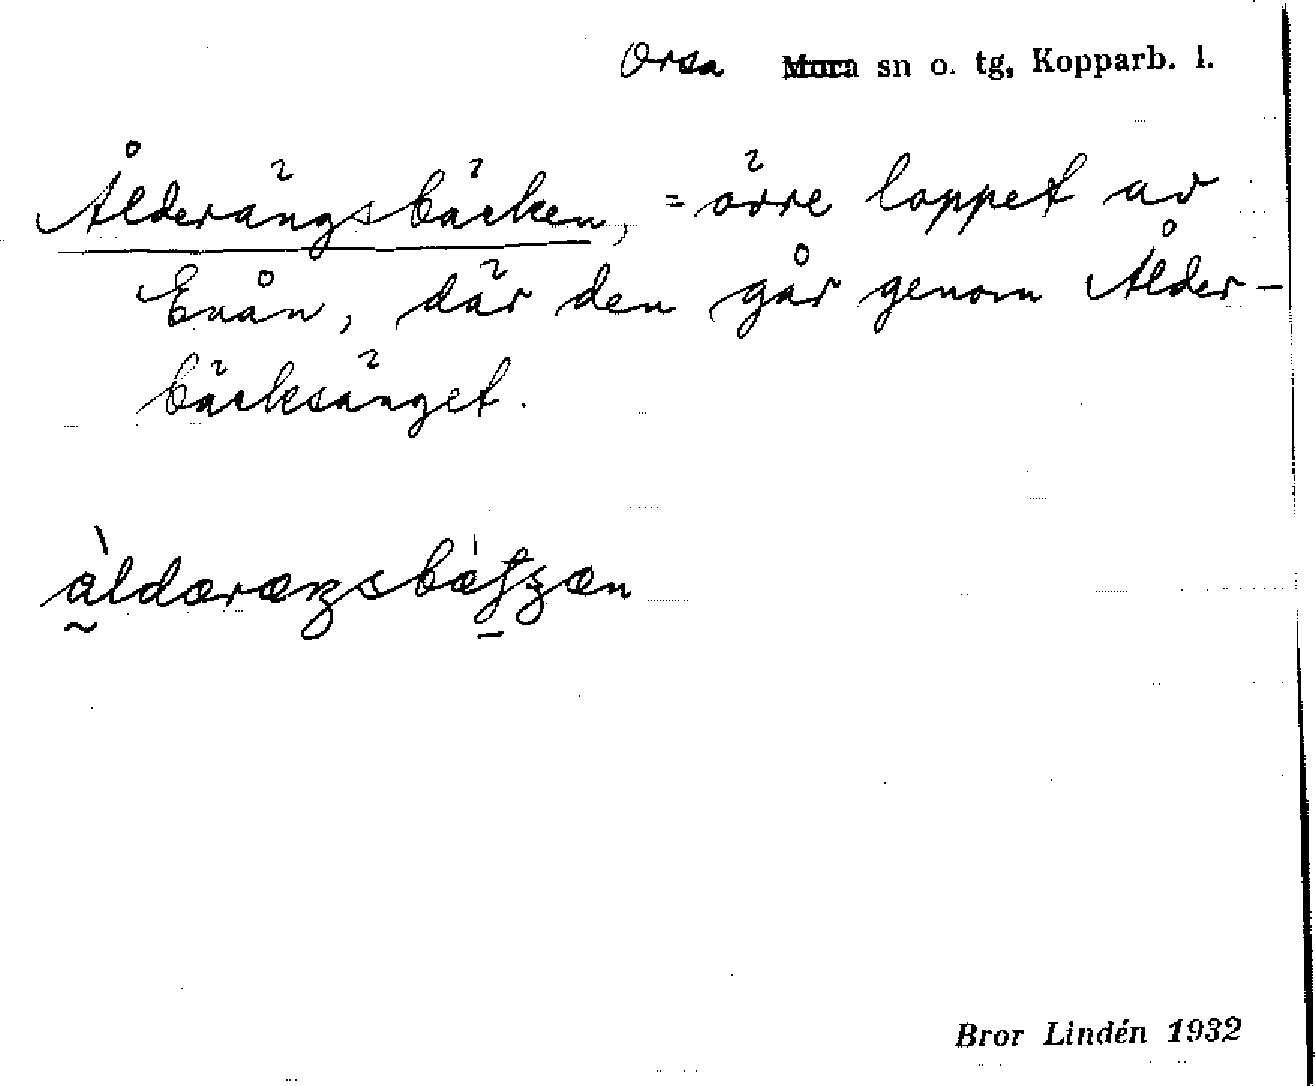 Orsa Mora sn o. tg, Kopparb. l.
Ålderängsbäcken, = övre loppet av
Enån, där den går genom Ålder-
bäcksänget.
Bror Lindén 1932